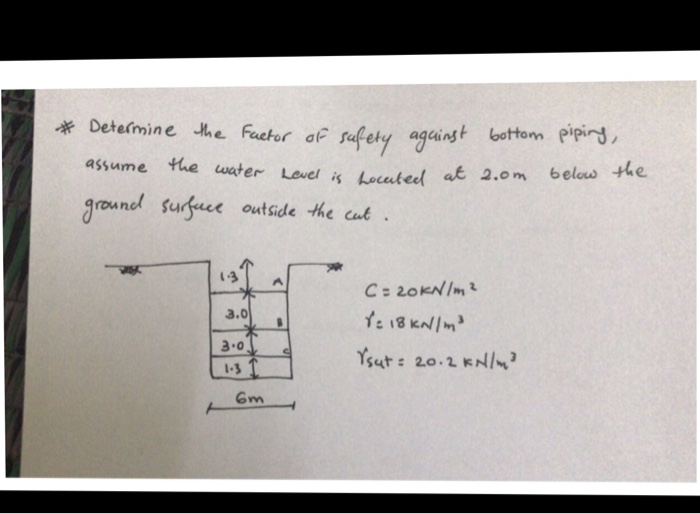 * Determine the Factor of safety against bottom piping,
assume the water Level is Located at 2.0m below the
ground surface outside the cut.
1.3
A
3.0
B
3.0
C
1.3
6m
C = 20KN/m²
γ = 18 KN/m³
γsat = 20.2 KN/m³